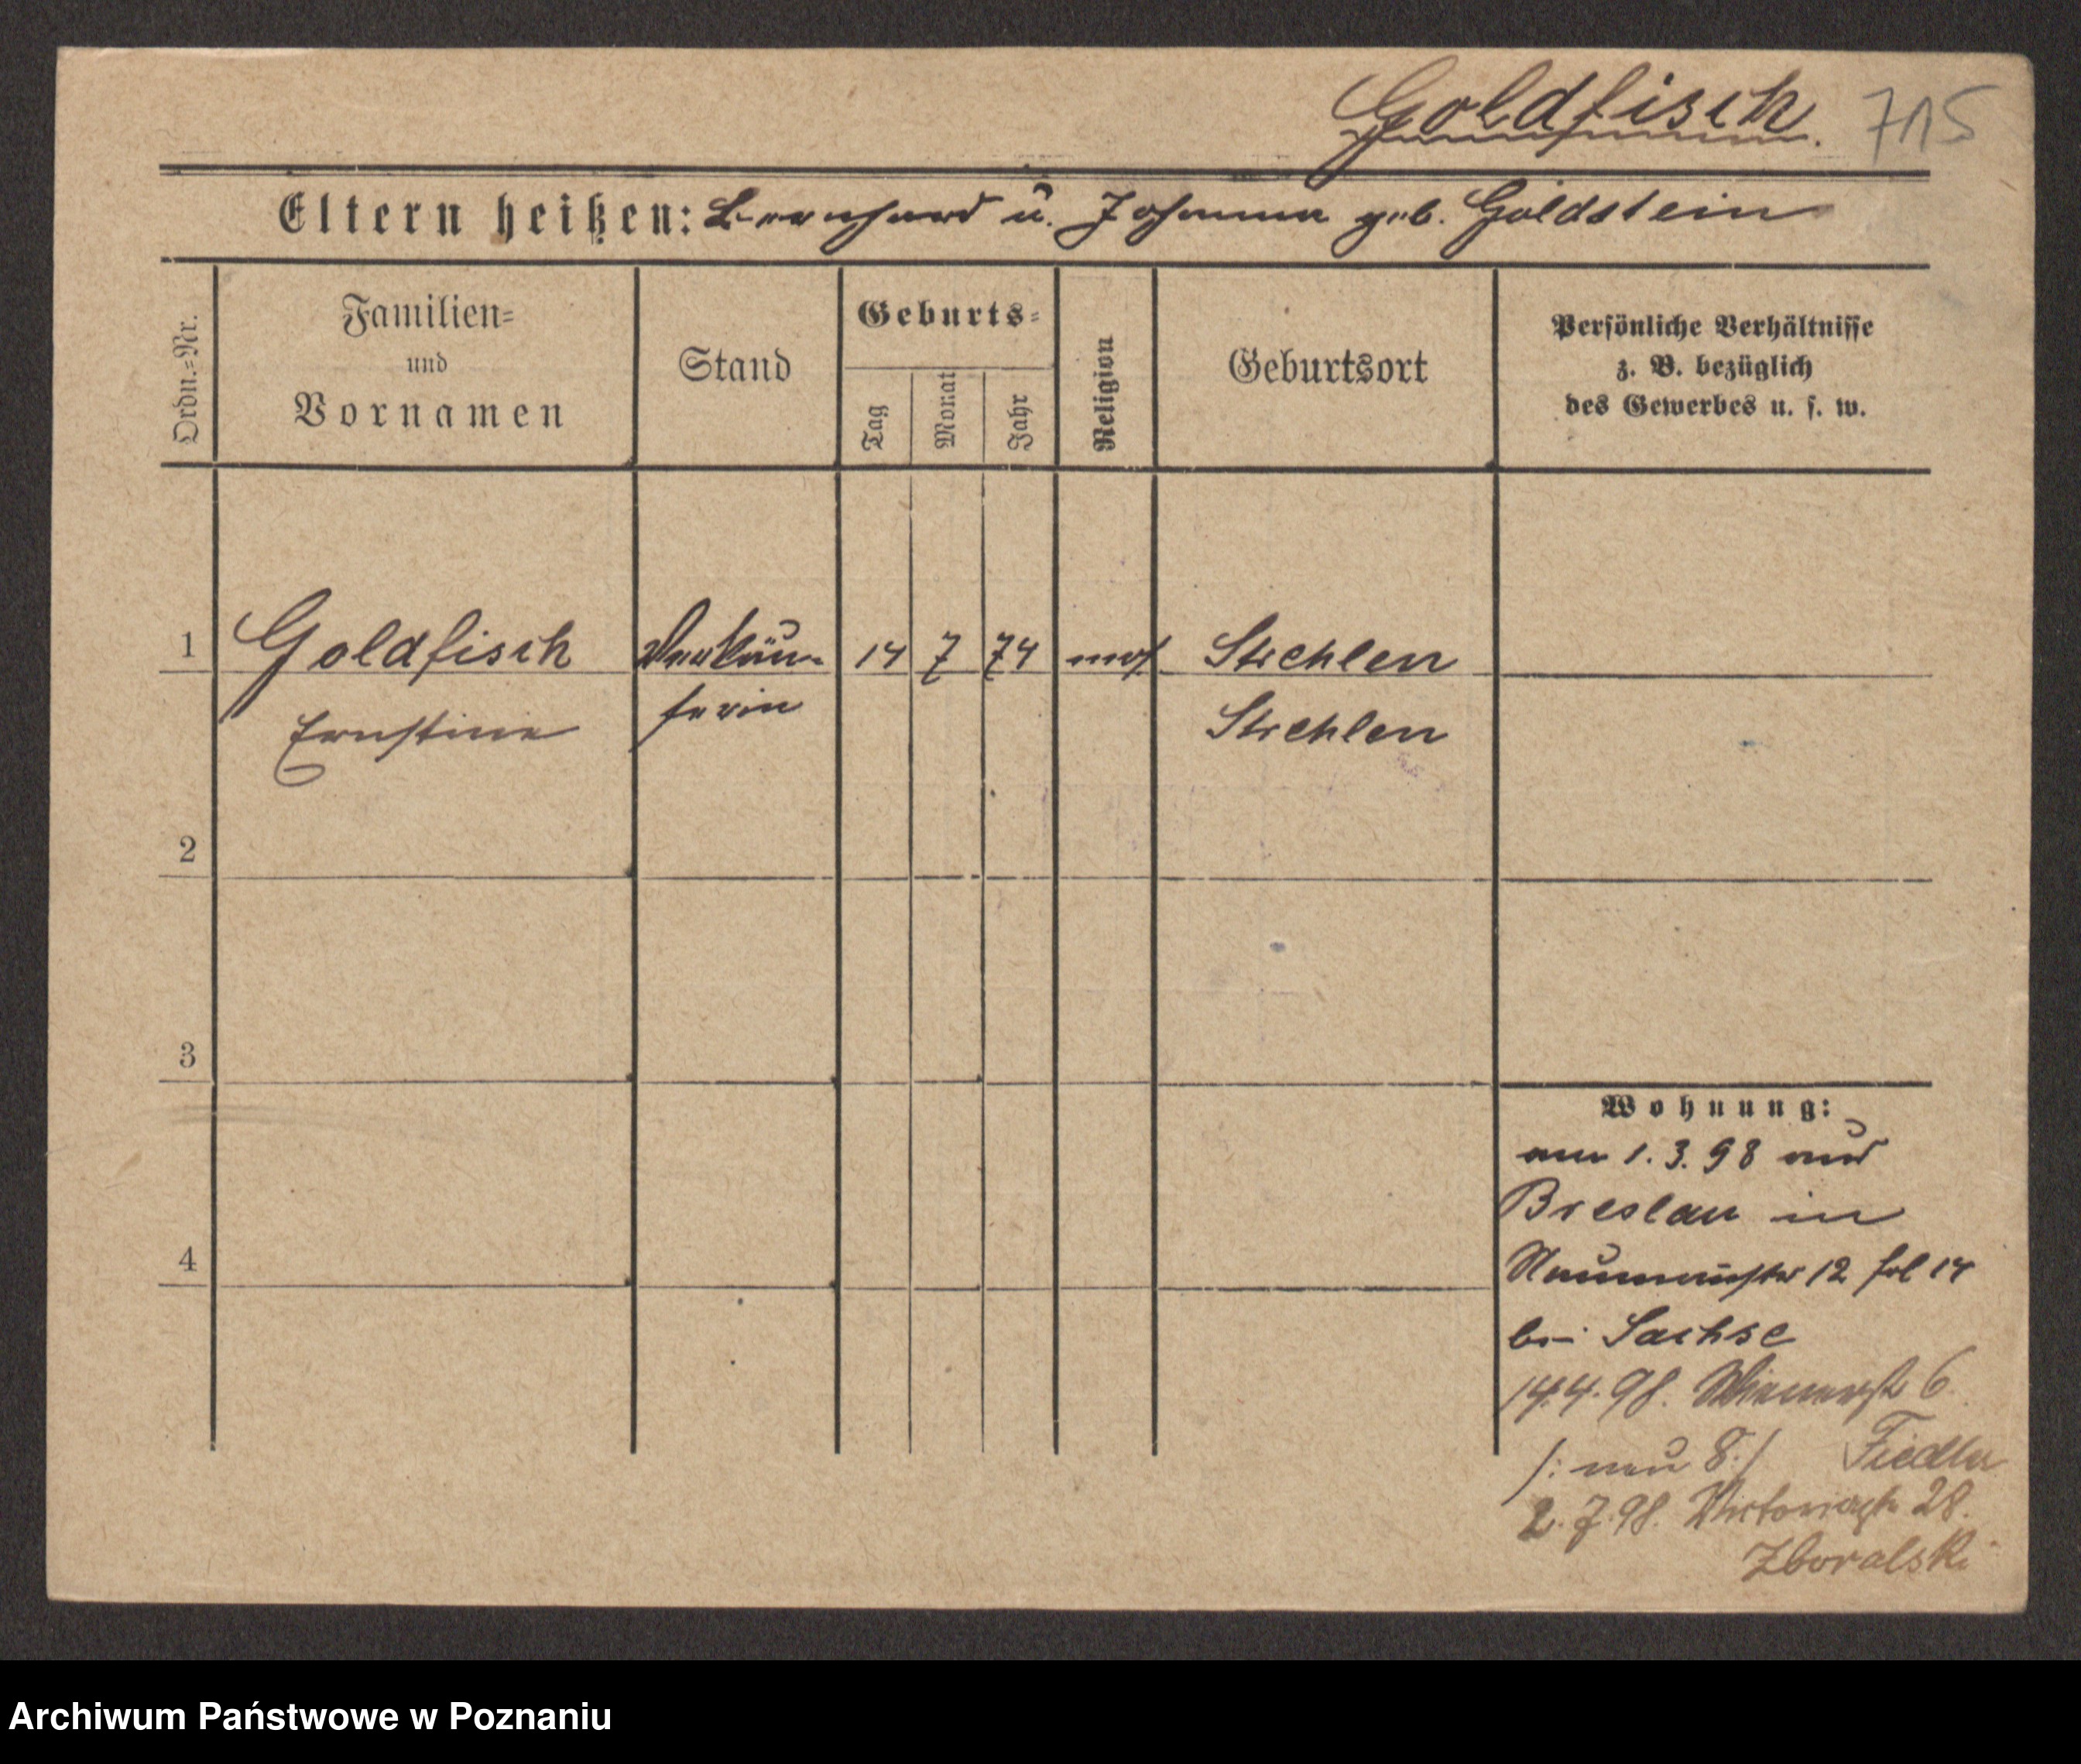 Goldfisch
715
Eltern heißen: Bernhard u. Johanna geb. Goldstein
Ordn.=Nr.
Familien=
und
Vornamen
Stand
Geburts=
Tag
Monat
Jahr
Religion
Geburtsort
Persönliche Verhältnisse
z. B. bezüglich
des Gewerbes u. s. w.
1 Goldfisch Verkäu- 14 7 74 mos Strehlen
Ernstine ferin Strehlen
2
3
4
Wohnung:
am 1.3.98 aus
Breslau in
Naumannstr 12 fol 14
bei Sachse
14.4.98. Wienerstr 6
/: neu 8 :/ Fiedler
2.7.98. Victoriastr 28.
Zboralski
Archiwum Państwowe w Poznaniu